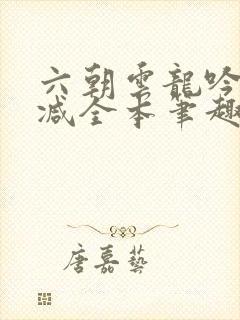 六朝雲龍吟
減全本筆趣
唐嘉藝